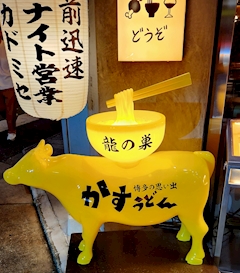 前迅速
ナイト営業
カドミセ
どうぞ
龍の巣
博多の思い出
かすうどん